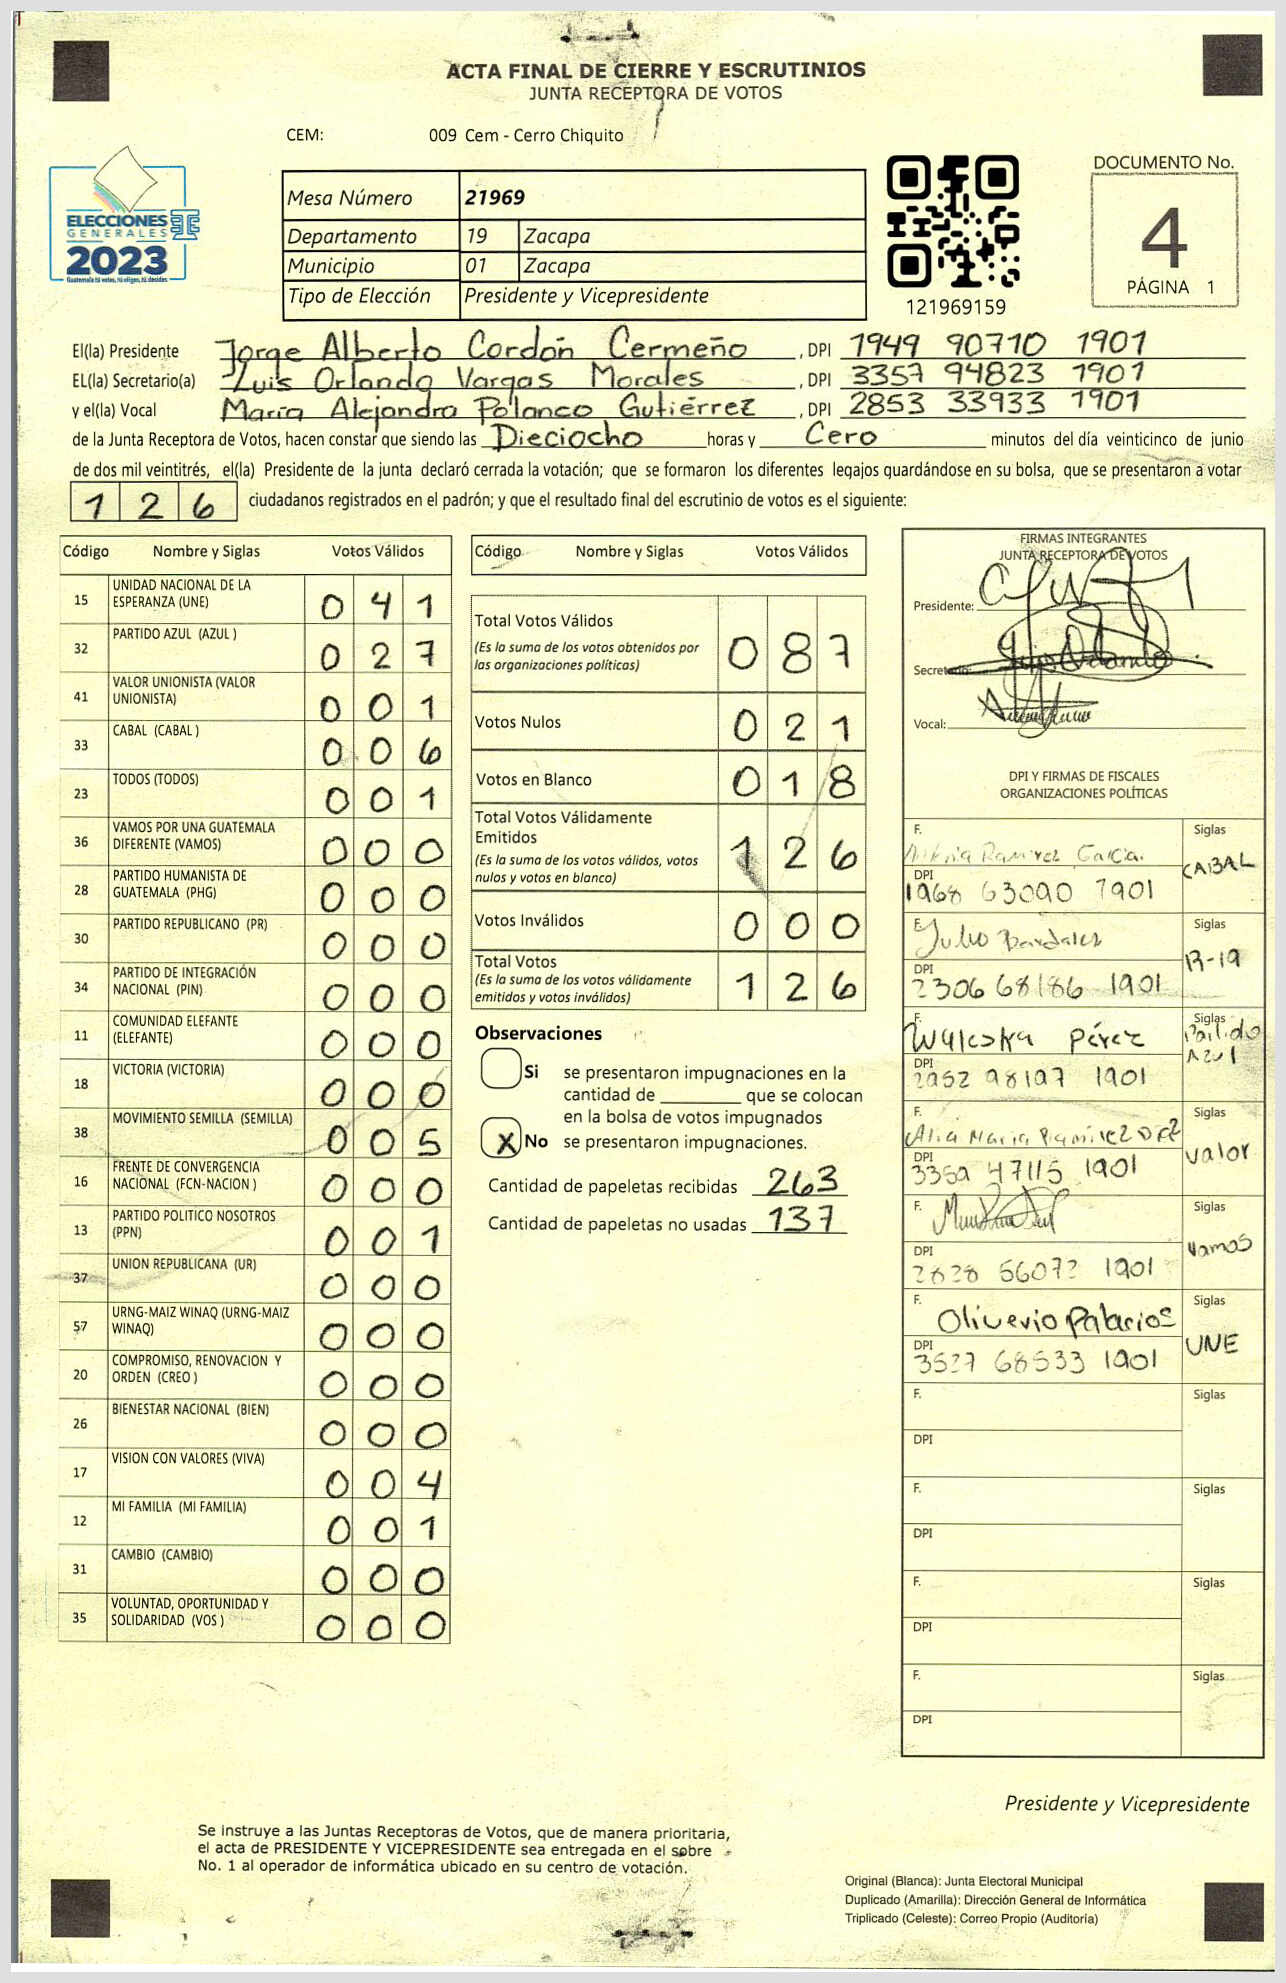 ACTA FINAL DE CIERRE Y ESCRUTINIOS
JUNTA RECEPTORA DE VOTOS
CEM: 009 Cem - Cerro Chiquito
ELECCIONES
GENERALES
2023
Guatemala tú votas, tú eliges, tú decides
Mesa Número 21969
Departamento 19 Zacapa
Municipio 01 Zacapa
Tipo de Elección Presidente y Vicepresidente
121969159
DOCUMENTO No.
4
PÁGINA 1
El(la) Presidente Jorge Alberto Cordón Cermeño , DPI 1949 90710 1901
EL(la) Secretario(a) Luis Orlando Vargas Morales , DPI 3357 94823 1901
y el(la) Vocal María Alejandra Polanco Gutiérrez , DPI 2853 33933 1901
de la Junta Receptora de Votos, hacen constar que siendo las Dieciocho horas y Cero minutos del día veinticinco de junio
de dos mil veintitrés, el(la) Presidente de la junta declaró cerrada la votación; que se formaron los diferentes legajos guardándose en su bolsa, que se presentaron a votar
126 ciudadanos registrados en el padrón; y que el resultado final del escrutinio de votos es el siguiente:
Código Nombre y Siglas Votos Válidos
15 UNIDAD NACIONAL DE LA
ESPERANZA (UNE) 041
32 PARTIDO AZUL (AZUL ) 027
41 VALOR UNIONISTA (VALOR
UNIONISTA) 001
33 CABAL (CABAL ) 006
23 TODOS (TODOS) 001
36 VAMOS POR UNA GUATEMALA
DIFERENTE (VAMOS) 000
28 PARTIDO HUMANISTA DE
GUATEMALA (PHG) 000
30 PARTIDO REPUBLICANO (PR) 000
34 PARTIDO DE INTEGRACIÓN
NACIONAL (PIN) 000
11 COMUNIDAD ELEFANTE
(ELEFANTE) 000
18 VICTORIA (VICTORIA) 000
38 MOVIMIENTO SEMILLA (SEMILLA) 005
16 FRENTE DE CONVERGENCIA
NACIONAL (FCN-NACION ) 000
13 PARTIDO POLITICO NOSOTROS
(PPN) 001
37 UNION REPUBLICANA (UR) 000
57 URNG-MAIZ WINAQ (URNG-MAIZ
WINAQ) 000
20 COMPROMISO, RENOVACION Y
ORDEN (CREO ) 000
26 BIENESTAR NACIONAL (BIEN) 000
17 VISION CON VALORES (VIVA) 004
12 MI FAMILIA (MI FAMILIA) 001
31 CAMBIO (CAMBIO) 000
35 VOLUNTAD, OPORTUNIDAD Y
SOLIDARIDAD (VOS ) 000
Código Nombre y Siglas Votos Válidos
Total Votos Válidos 087
(Es la suma de los votos obtenidos por
las organizaciones políticas)
Votos Nulos 021
Votos en Blanco 018
Total Votos Válidamente
Emitidos 126
(Es la suma de los votos válidos, votos
nulos y votos en blanco)
Votos Inválidos 000
Total Votos 126
(Es la suma de los votos válidamente
emitidos y votos inválidos)
Observaciones
Si se presentaron impugnaciones en la
cantidad de ________ que se colocan
en la bolsa de votos impugnados
X No se presentaron impugnaciones.
Cantidad de papeletas recibidas 263
Cantidad de papeletas no usadas 137
FIRMAS INTEGRANTES
JUNTA RECEPTORA DE VOTOS
Presidente:
Secretario:
Vocal:
DPI Y FIRMAS DE FISCALES
ORGANIZACIONES POLÍTICAS
F. Ramirez Garcia. Siglas CABAL
DPI 1968 63090 1901
F. Julio Siglas R-19
DPI 2306 68186 1901
F. Waleska Pérez Siglas Partido Azul
DPI 2952 98197 1901
F. Maria Ramirez Siglas Valor
DPI 3359 47115 1901
F. Siglas Vamos
DPI 2828 56072 1901
F. Oliverio Palacios Siglas UNE
DPI 3527 68533 1901
F. Siglas
DPI
F. Siglas
DPI
F. Siglas
DPI
F. Siglas
DPI
Presidente y Vicepresidente
Se instruye a las Juntas Receptoras de Votos, que de manera prioritaria,
el acta de PRESIDENTE Y VICEPRESIDENTE sea entregada en el sobre
No. 1 al operador de informática ubicado en su centro de votación.
Original (Blanca): Junta Electoral Municipal
Duplicado (Amarilla): Dirección General de Informática
Triplicado (Celeste): Correo Propio (Auditoría)